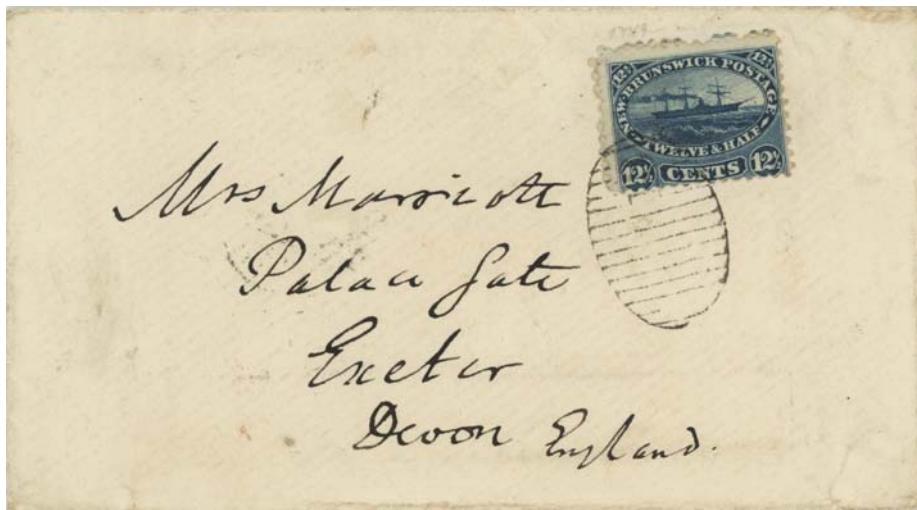 12½ 12½
NEW-BRUNSWICK POSTAGE
TWELVE & HALF
12½ CENTS 12½
Mrs Marriott
Palace Gate
Exeter
Devon England.